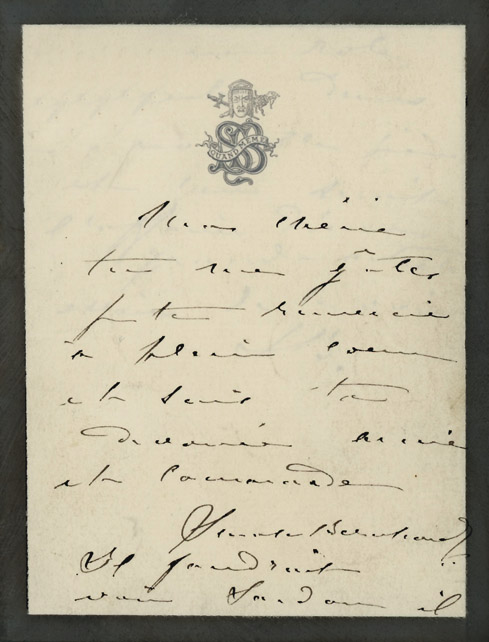 QUAND MEME
Mon chérie
tu me gâtes
je te remercie
à plein coeur
et suis ta
dévouée amie
et camarade
Sarah Bernhardt
Il faudrait
voir Sardou il